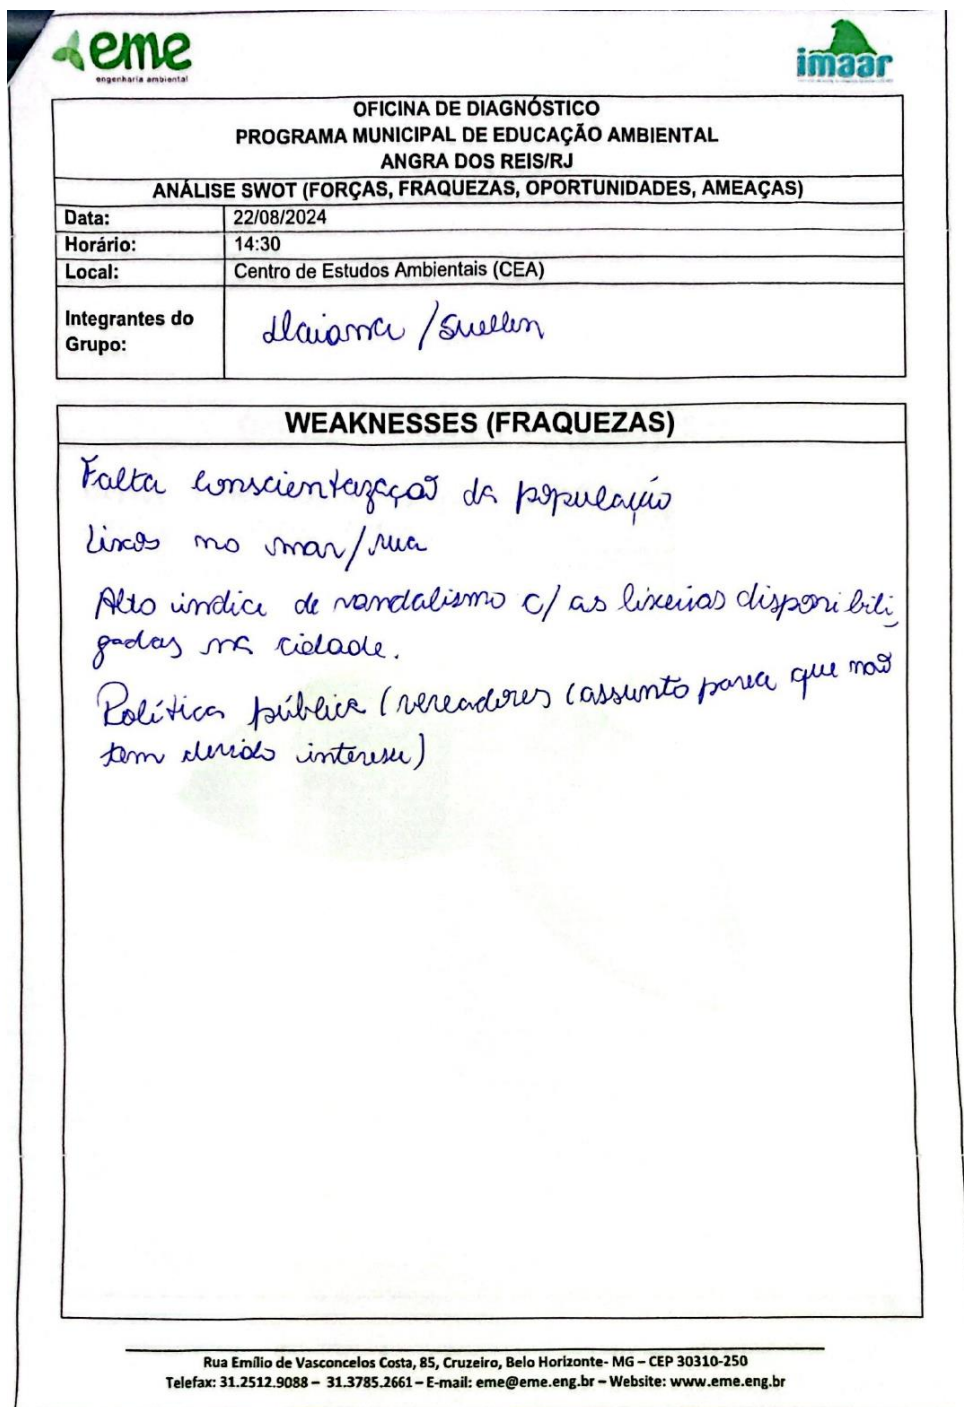 eme
engenharia ambiental
imaar
OFICINA DE DIAGNÓSTICO
PROGRAMA MUNICIPAL DE EDUCAÇÃO AMBIENTAL
ANGRA DOS REIS/RJ
ANÁLISE SWOT (FORÇAS, FRAQUEZAS, OPORTUNIDADES, AMEAÇAS)
Data: 22/08/2024
Horário: 14:30
Local: Centro de Estudos Ambientais (CEA)
Integrantes do
Grupo:
/Suellen
WEAKNESSES (FRAQUEZAS)
Falta conscientazação da população
Lixos no mar/rua
Alto índice de vandalismo c/ as lixeiras disponibili
zadas na cidade.
Política pública (vereadores (assunto parece que não
tem devido interesse)
Rua Emílio de Vasconcelos Costa, 85, Cruzeiro, Belo Horizonte- MG – CEP 30310-250
Telefax: 31.2512.9088 – 31.3785.2661 – E-mail: eme@eme.eng.br – Website: www.eme.eng.br